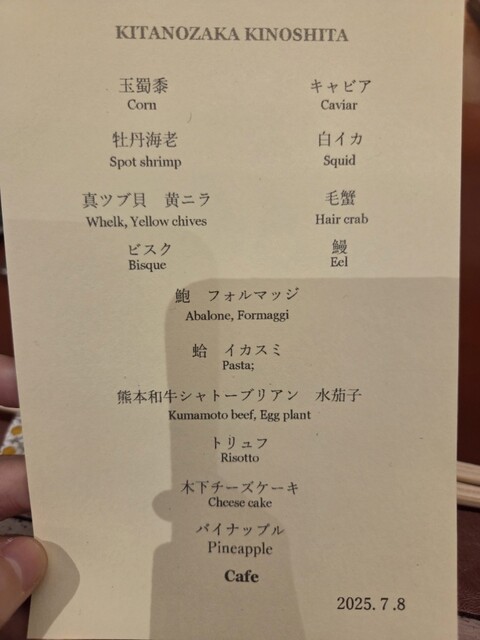 KITANOZAKA KINOSHITA
玉蜀黍 キャビア
Corn Caviar
牡丹海老 白イカ
Spot shrimp Squid
真ツブ貝 黄ニラ 毛蟹
Whelk, Yellow chives Hair crab
ビスク 鰻
Bisque Eel
鮑 フォルマッジ
Abalone, Formaggi
蛤 イカスミ
Pasta;
熊本和牛シャトーブリアン 水茄子
Kumamoto beef, Egg plant
トリュフ
Risotto
木下チーズケーキ
Cheese cake
パイナップル
Pineapple
Cafe
2025. 7. 8